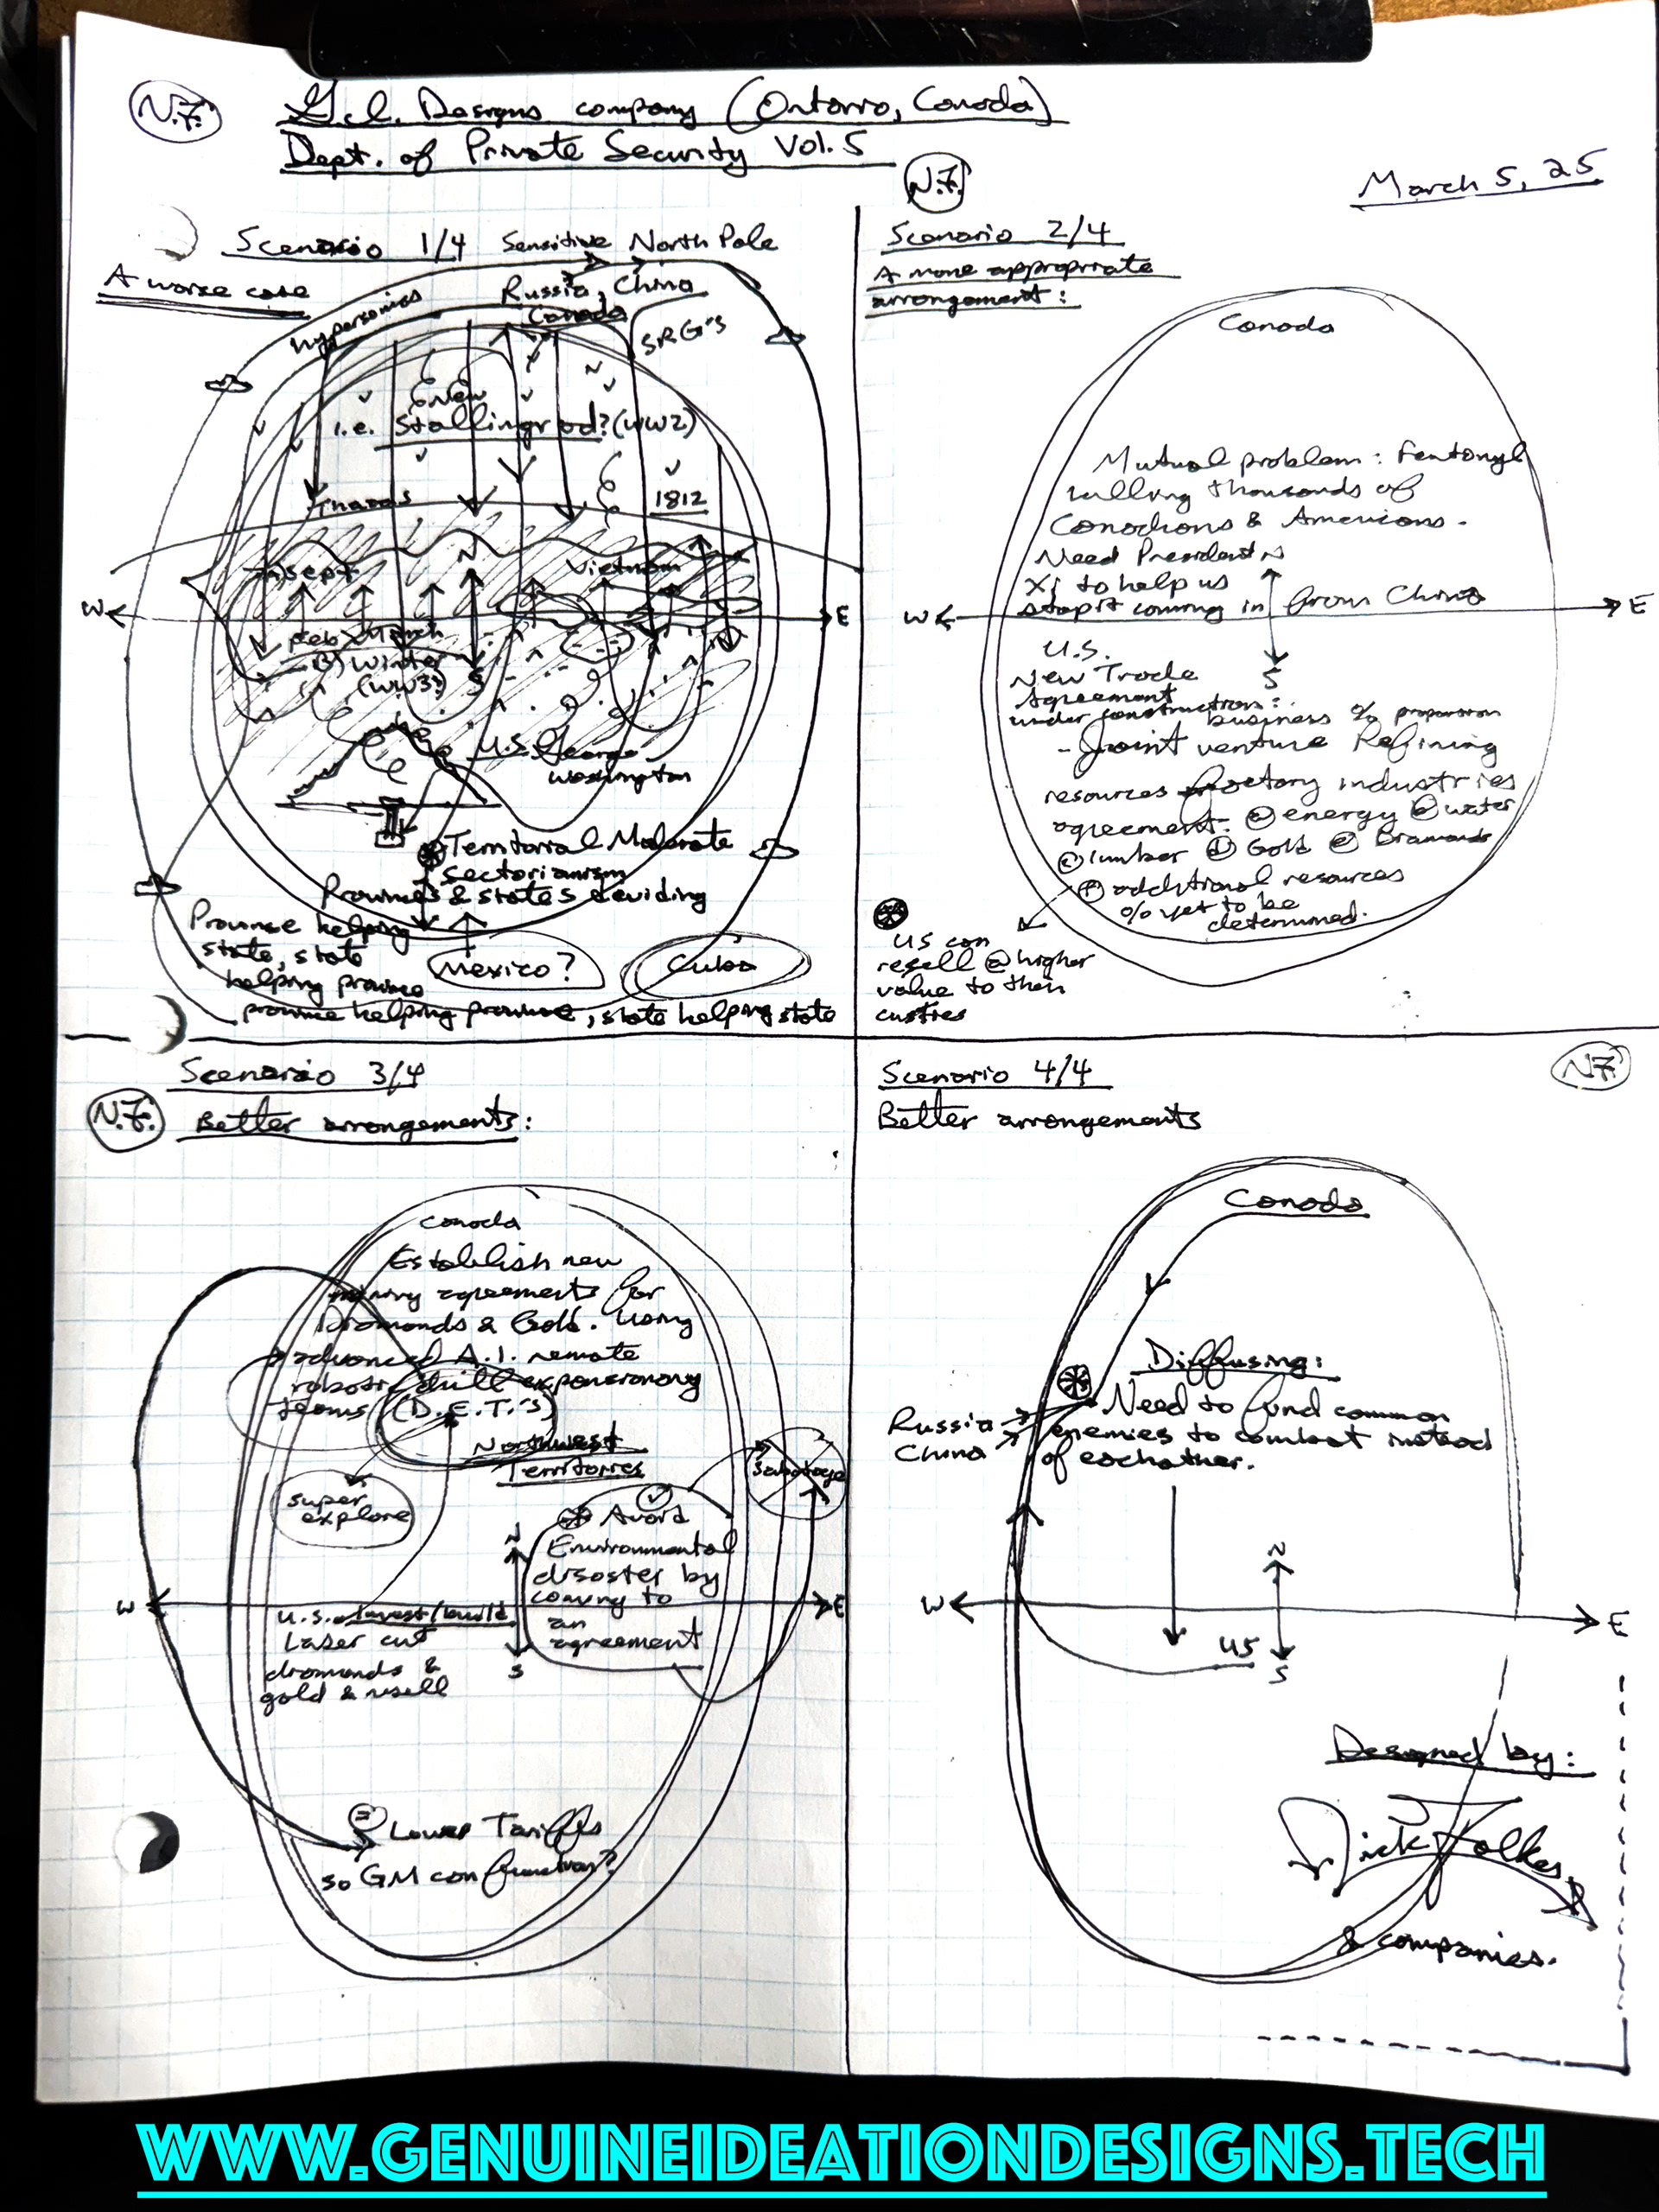 N.F.
G.I. Designs company (Ontario, Canada)
Dept. of Private Security Vol. 5
N.F.
March 5, 25
Scenario 1/4 Sensitive North Pole
A worse case
Russia, China
Canada
hypersonics
SRG's
New
i.e. Stallingrad? (WW2)
1812
N
in sept
Vietnam
W
E
Feb March
Winter
(WW3?) S
U.S. George
Washington
Territorial Moderate
Sectorianism
Provinces & states deviding
Province helping
state, state
helping province
Mexico?
Cuba
province helping province, state helping state
Scenario 2/4
A more appropriate
arrangement:
Canada
Mutual problem: Fentanyl
killing thousands of
Canadians & Americans.
Need President N
Xi to help us
stop it coming in from China
W
E
U.S.
S
New Trade
Agreement
under construction:
business % proportion
- Joint venture Refining
resources factory industries
agreement: a energy b water
c lumber d Gold e Diamonds
f additional resources
% yet to be
determined.
US can
resell @ higher
value to their
custies
Scenario 3/4
N.F.
Better arrangements:
Canada
Establish new
mining agreements for
Diamonds & Gold. Using
advanced A.I. remote
robotic drill expansionary
teams (D.E.T.'s)
Northwest
Territories
super
explore
Sabotage
Avoid
Environmental
disaster by
coming to
an
agreement
N
W
E
S
U.S. invest/build
Laser cut
diamonds &
gold & resell
= Lower Tariffs
so GM can function?
Scenario 4/4
N.F.
Better arrangements
Canada
Diffusing:
Need to fund common
enemies to combat instead
of eachother.
Russia
China
N
W
E
US
S
Designed by:
Nick Folkes
& companies.
WWW.GENUINEIDEATIONDESIGNS.TECH